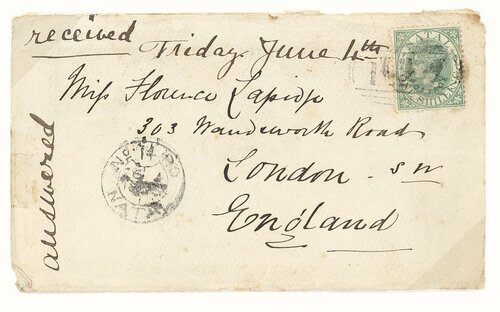 received
Friday June 4th
Miss Florence
303 Wandsworth Road
London. SW
England
answered
NATAL
SHILLING
NATAL